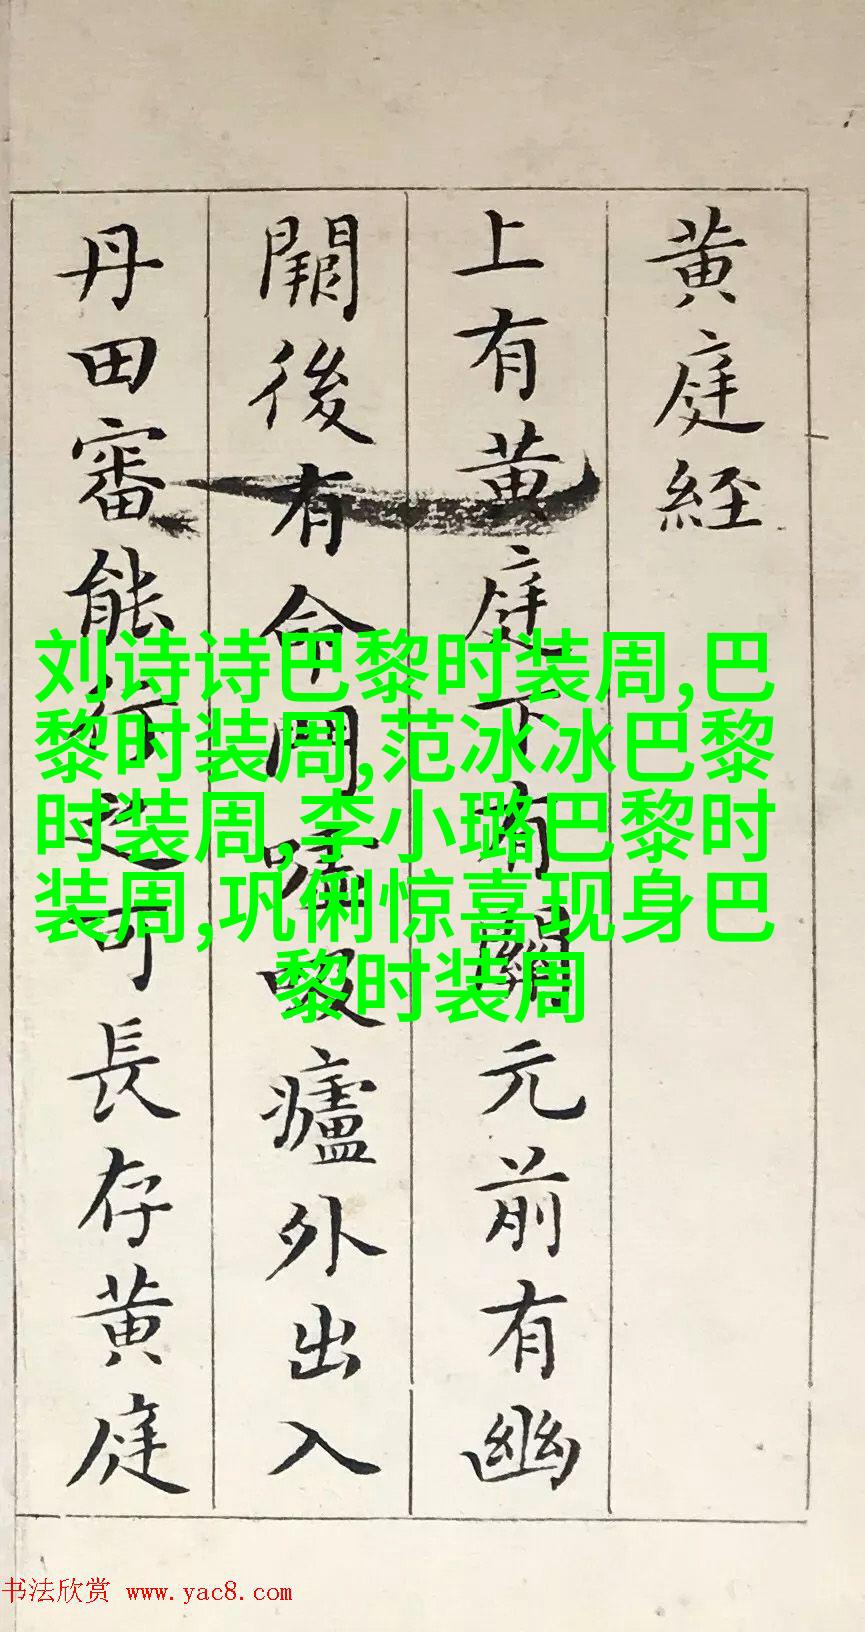 黄庭經
上有黄庭下有關元前有幽
闕後有命門噓吸廬外出入
丹田審能行之可長存黄庭
刘诗诗巴黎时装周,巴
黎时装周,范冰冰巴黎
时装周,李小璐巴黎时
装周,巩俐惊喜现身巴
黎时装周
书法欣赏 www.yac8.com